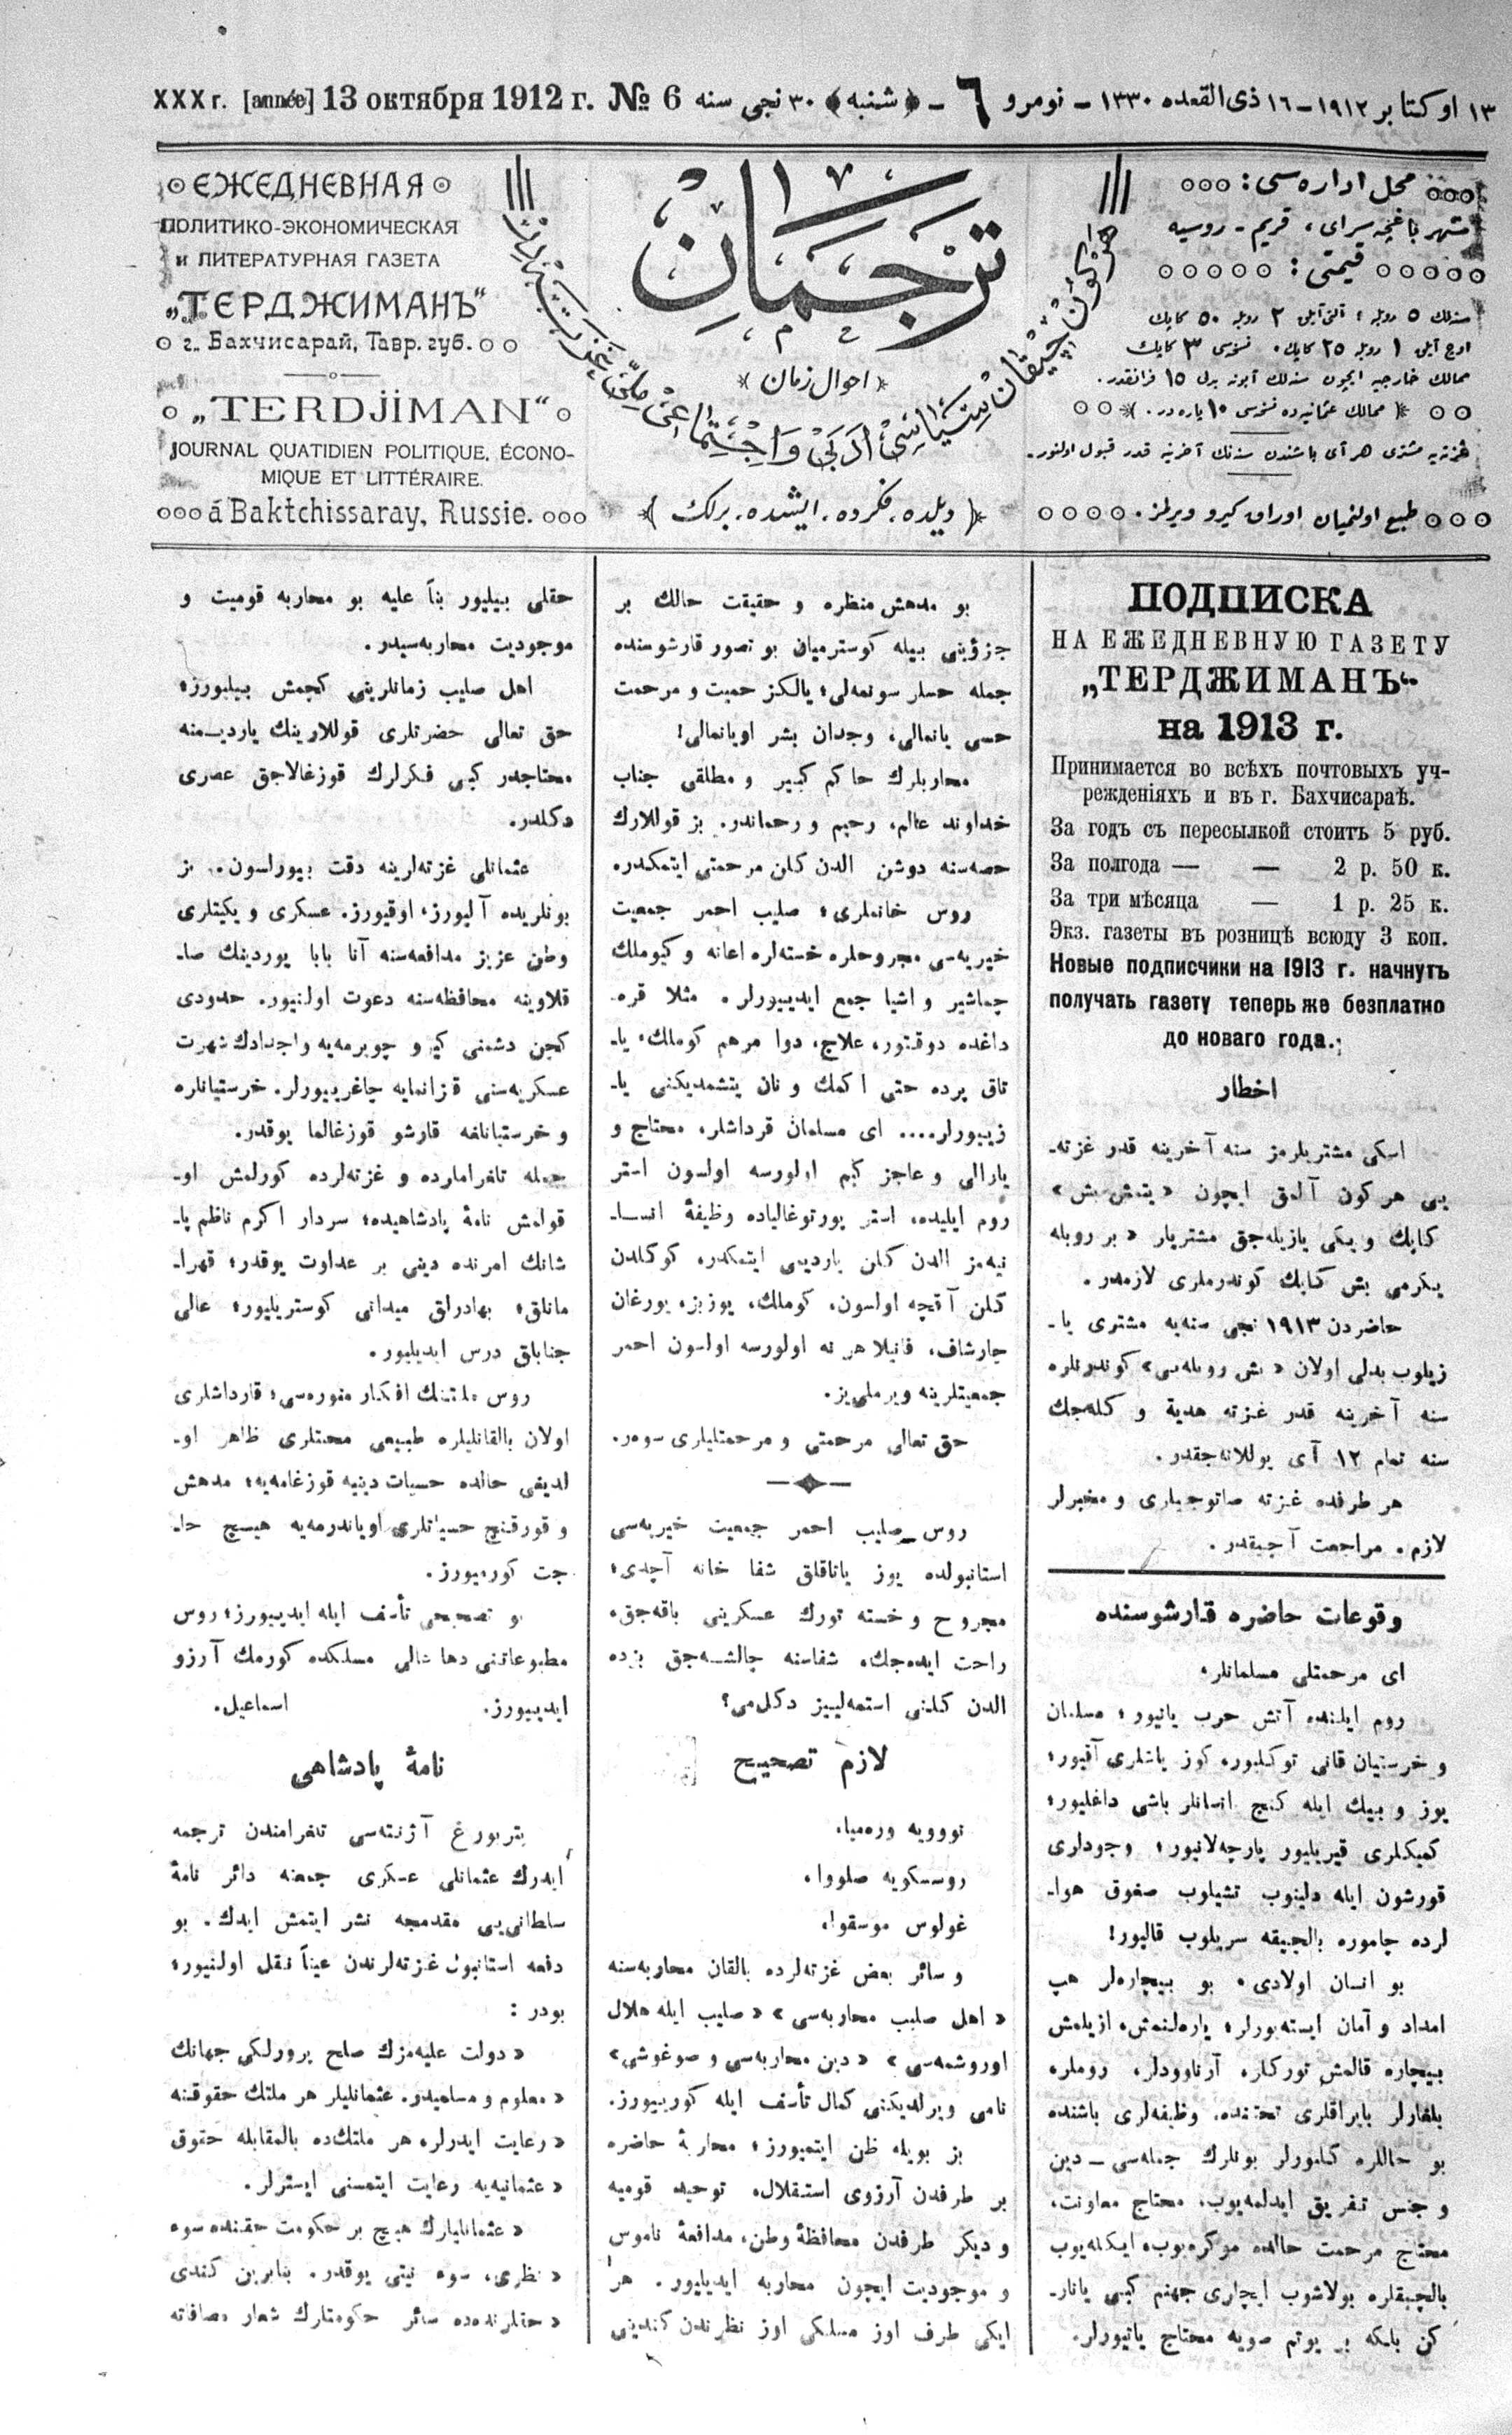 XXX г. [année] 13 октября 1912 г. № 6 ۳۰ نجی سنه ﴿شنبه﴾ – ۱۳ اوکتابر ۱۹۱۲ – ۱۶ ذی القعده ۱۳۳۰ – نومرو ٦
ЕЖЕДНЕВНАЯ
ПОЛИТИКО-ЭКОНОМИЧЕСКАЯ
и ЛИТЕРАТУРНАЯ ГАЗЕТА
„ТЕРДЖИМАНЪ“
г. Бахчисарай, Тавр. губ.
„TERDJİMAN“
JOURNAL QUATIDIEN POLITIQUE, ÉCONO-
MIQUE ET LITTÉRAIRE.
á Baktchissaray, Russie.
ترجمان
احوال زمان
هر كون چیقان سیاسی ادبی و اجتماعی ملی
﴿ دیلده، فكرده، ایشده، برلك ﴾
محل اداره‌سی:
شهر باغچه سرای، قریم ـ روسیه
قیمتی:
سنه‌لك ۵ روبله؛ آلتی آیلق ۲ روبله ۵۰ كاپك
اوچ آیلق ۱ روبله ۲۵ كاپك، نسخه‌سی ۳ كاپك
ممالك خارجیه ایچون سنه‌لك آبونه بدلی ۱۵ فرانقدر.
ممالك عثمانیه‌ده نسخه‌سی ۱۰ پاره‌در.
غزته‌یه مشتری هر آی باشندن سنه‌نك آخرینه قدر قبول اولنور.
طبع اولنمیان اوراق كیرو ویرلمز.
ПОДПИСКА
НА ЕЖЕДНЕВНУЮ ГАЗЕТУ
„ТЕРДЖИМАНЪ“
на 1913 г.
Принимается во всѣхъ почтовыхъ уч-
режденіяхъ и въ г. Бахчисараѣ.
За годъ съ пересылкой стоитъ 5 руб.
За полгода — — 2 р. 50 к.
За три мѣсяца — 1 р. 25 к.
Экз. газеты въ розницѣ всюду 3 коп.
Новые подписчики на 1913 г. начнутъ
получать газету теперь же безплатно
до новаго года.
اخطار
اسكی مشتریلرمز سنه آخرینه قدر غزته‌ـ
یی هر كون آلمق ایچون «یتمش بش»
كاپك و یكی یازیله‌جق مشتریلر «بر روبله
یكرمی بش كاپك كوندرملری لازمدر.
حاضردن ۱۹۱۳ نجی سنه‌یه مشتری یا‌ـ
زیلوب بدلی اولان «بش روبله‌یی» كوندرنلره
سنه آخرینه قدر غزته هدیة و كله‌جك
سنه تمام ۱۲ آی یوللانه‌جقدر.
هر طرفده غزته صاتوجیلری و مخبرلر
لازم، مراجعت آچیقدر.
وقوعات حاضره قارشوسنده
ای مرحمتلی مسلمانلر،
روم ایلنده آتش حرب یانیور؛ مسلمان
و خرستیان قانی توكلیور، كوز یاشلری آقیور؛
یوز و بیك ایله كنج انسانلر باشی داغلیور؛
كمیكلری قیریلیور پارچه‌لانیور؛ وجودلری
قورشون ایله دلینوب تشیلوب صغوق هوا‌ـ
لرده چاموره بالچیقه سریلوب قالیور!
بو انسان اولادی، بو بیچاره‌لر هپ
امداد و آمان ایسته‌یورلر؛ یاره‌لنمش، ازیلمش
بیچاره قالمش توركلر، آرناوودلر، روملر،
بلغارلر بایراقلری تحتنده، وظیفه‌لری باشنده
بو حاللره كلیورلر بونلرك جمله‌سی ـ دین
و جنس تفریق ایدلمه‌یوب، محتاج معاونت،
محتاج مرحمت حالده موكره‌یوب، ایكله‌یوب
بالچیقلره بولاشوب ایچلری جهنم كبی یانار‌ـ
كن بلكه بر یوتم صویه محتاج یاتیورلر.
بو مدهش منظره و حقیقت حالك بر
جزؤینی بیله كوسترمیان بو تصور قارشوسنده
جمله حسلر سونمه‌لی؛ یالكز حمیت و مرحمت
حسی یانمالی، وجدان بشر اویانمالی!
محاربلرك حاكم كبیر و مطلقی جناب
خداوند عالم، رحیم و رحماندر. بز قوللارك
حصه‌سنه دوشن الدن كلن مرحمتی ایتمكدر،
روس خانملری؛ صلیب احمر جمعیت
خیریه‌سی مجروحلره خسته‌لره اعانه و كیوملك
چماشیر و اشیا جمع ایدییورلر، مثلا قره‌
داغده دوقتور، علاج، دوا مرهم كوملك، یا‌ـ
تاق یرده حتی اكمك و نان یتشمدیكنی یا‌ـ
زییورلر.... ای مسلمان قرداشلر، محتاج و
یارالی و عاجز كیم اولورسه اولسون استر
روم ایلیده، استر پورتوغالیاده وظیفۀ انسا‌ـ
نیه‌مز الدن كلن یاردیمی ایتمكدر، كوكلدن
كلن آقچه اولسون، كوملك، یوز بز، یورغان
چارشاف، فانیلا هر نه اولورسه اولسون احمر
جمعیتلرینه ویرملی‌یز.
حق تعالی مرحمتی و مرحمتلیلری سوه‌ر.
روس صلیب احمر جمعیت خیریه‌سی
استانبولده یوز یاتاقلق شفا خانه آچدی؛
مجروح و خسته تورك عسكرینی باقه‌جق،
راحت ایده‌جك، شفاسنه چالشه‌جق بزده
الدن كلنی استمه‌لییز دكل‌می؟
لازم تصحیح
نووویه وره‌میا،
روسسكویه صلووا،
غولوس موسقوا،
و سائر بعض غزته‌لرده بالقان محاربه‌سنه
«اهل صلیب محاربه‌سی» «صلیب ایله هلال
اوروشمه‌سی» «دین محاربه‌سی و صوغوشی»
نامی ویرلدیكنی كمال تأسف ایله كورییورز.
بز بویله ظن ایتمیورز؛ محاربۀ حاضره
بر طرفدن آرزوی استقلال، توحید قومیه
و دیكر طرفدن محافظۀ وطن، مدافعۀ ناموس
و موجودیت ایچون محاربه ایدیلیور. هر
ایكی طرف اوز مسلكی اوز نظرندن كندینی
حقلی بیلیور بناً علیه بو محاربه قومیت و
موجودیت محاربه‌سیدر.
اهل صلیب زمانلرینی كچمش بیلیورز؛
حق تعالی حضرتلری قوللارینك یاردیمنه
محتاجدر كبی فكرلرك قوزغالاجق عصری
دكلدر.
عثمانلی غزته‌لرینه دقت بیورلسون. بز
بونلریده آلیورز، اوقیورز. عسكری و یكیتلری
وطن عزیز مدافعه‌سنه آنا بابا یوردینك صا‌ـ
قلاوینه محافظه‌سنه دعوت اولنیور. حدودی
كچن دشمنی كیرو چویرمه‌یه واجدادك شهرت
عسكریه‌سنی قزانمایه چاغرییورلر. خرستیانلره
و خرستیانلغه قارشو قوزغالما یوقدر.
جمله تلغرامارده و غزته‌لرده كورلمش او‌ـ
قولمش نامۀ پادشاهیده؛ سردار اكرم ناظم پا‌ـ
شانك امرنده دینی بر عداوت یوقدر؛ قهرا‌ـ
مانلق؛ بهادرلق میدانی كوستریلیور؛ عالی
جنابلق درس ایدیلیور.
روس ملتینك افكار منوره‌سی؛ قارداشلری
اولان بالقانلیلره طبیعی محبتلری ظاهر او‌ـ
لدیغی حالده حسیات دینیه قوزغامه‌یه؛ مدهش
و قورقنچ حسیاتلری اویاندرمه‌یه هیچ حا‌ـ
جت كورمیورز.
بو تصحیحی تأسف ایله ایدییورز؛ روس
مطبوعاتنی دها عالی مسلكده كورمك آرزو
ایدییورز. اسماعیل.
نامۀ پادشاهی
پتربورغ آژنته‌سی تلغرامندن ترجمه
ایدرك عثمانلی عسكری جمعنه دائر نامۀ
سلطانی‌یی مقدمجه نشر ایتمش ایدك. بو
دفعه استانبول غزته‌لرندن عیناً نقل اولنیور؛
بودر :
«دولت علیه‌مزك صلح پرورلكی جهانك
«معلوم و مسلمیدر. عثمانلیلر هر ملتك حقوقنه
«رعایت ایدرلر، هر ملتك‌ده بالمقابله حقوق
«عثمانیه‌یه رعایت ایتمسنی ایسترلر.
«عثمانلیلرك هیچ بر حكومت حقنده سوء
«نظری، سوء نیتی یوقدر. بنابرین كندی
«حقلرنده‌ده سائر حكومتلرك شعار مصافاته